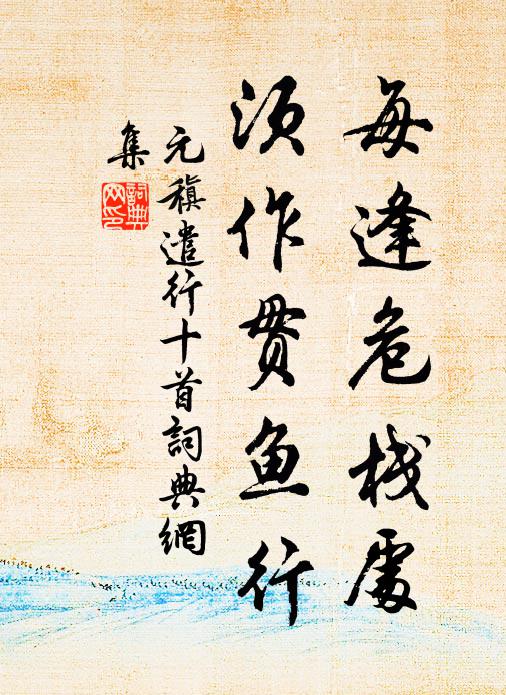 每逢危栈處
须作贯鱼行
元稹遣行十首詞典網
集
詞典網印